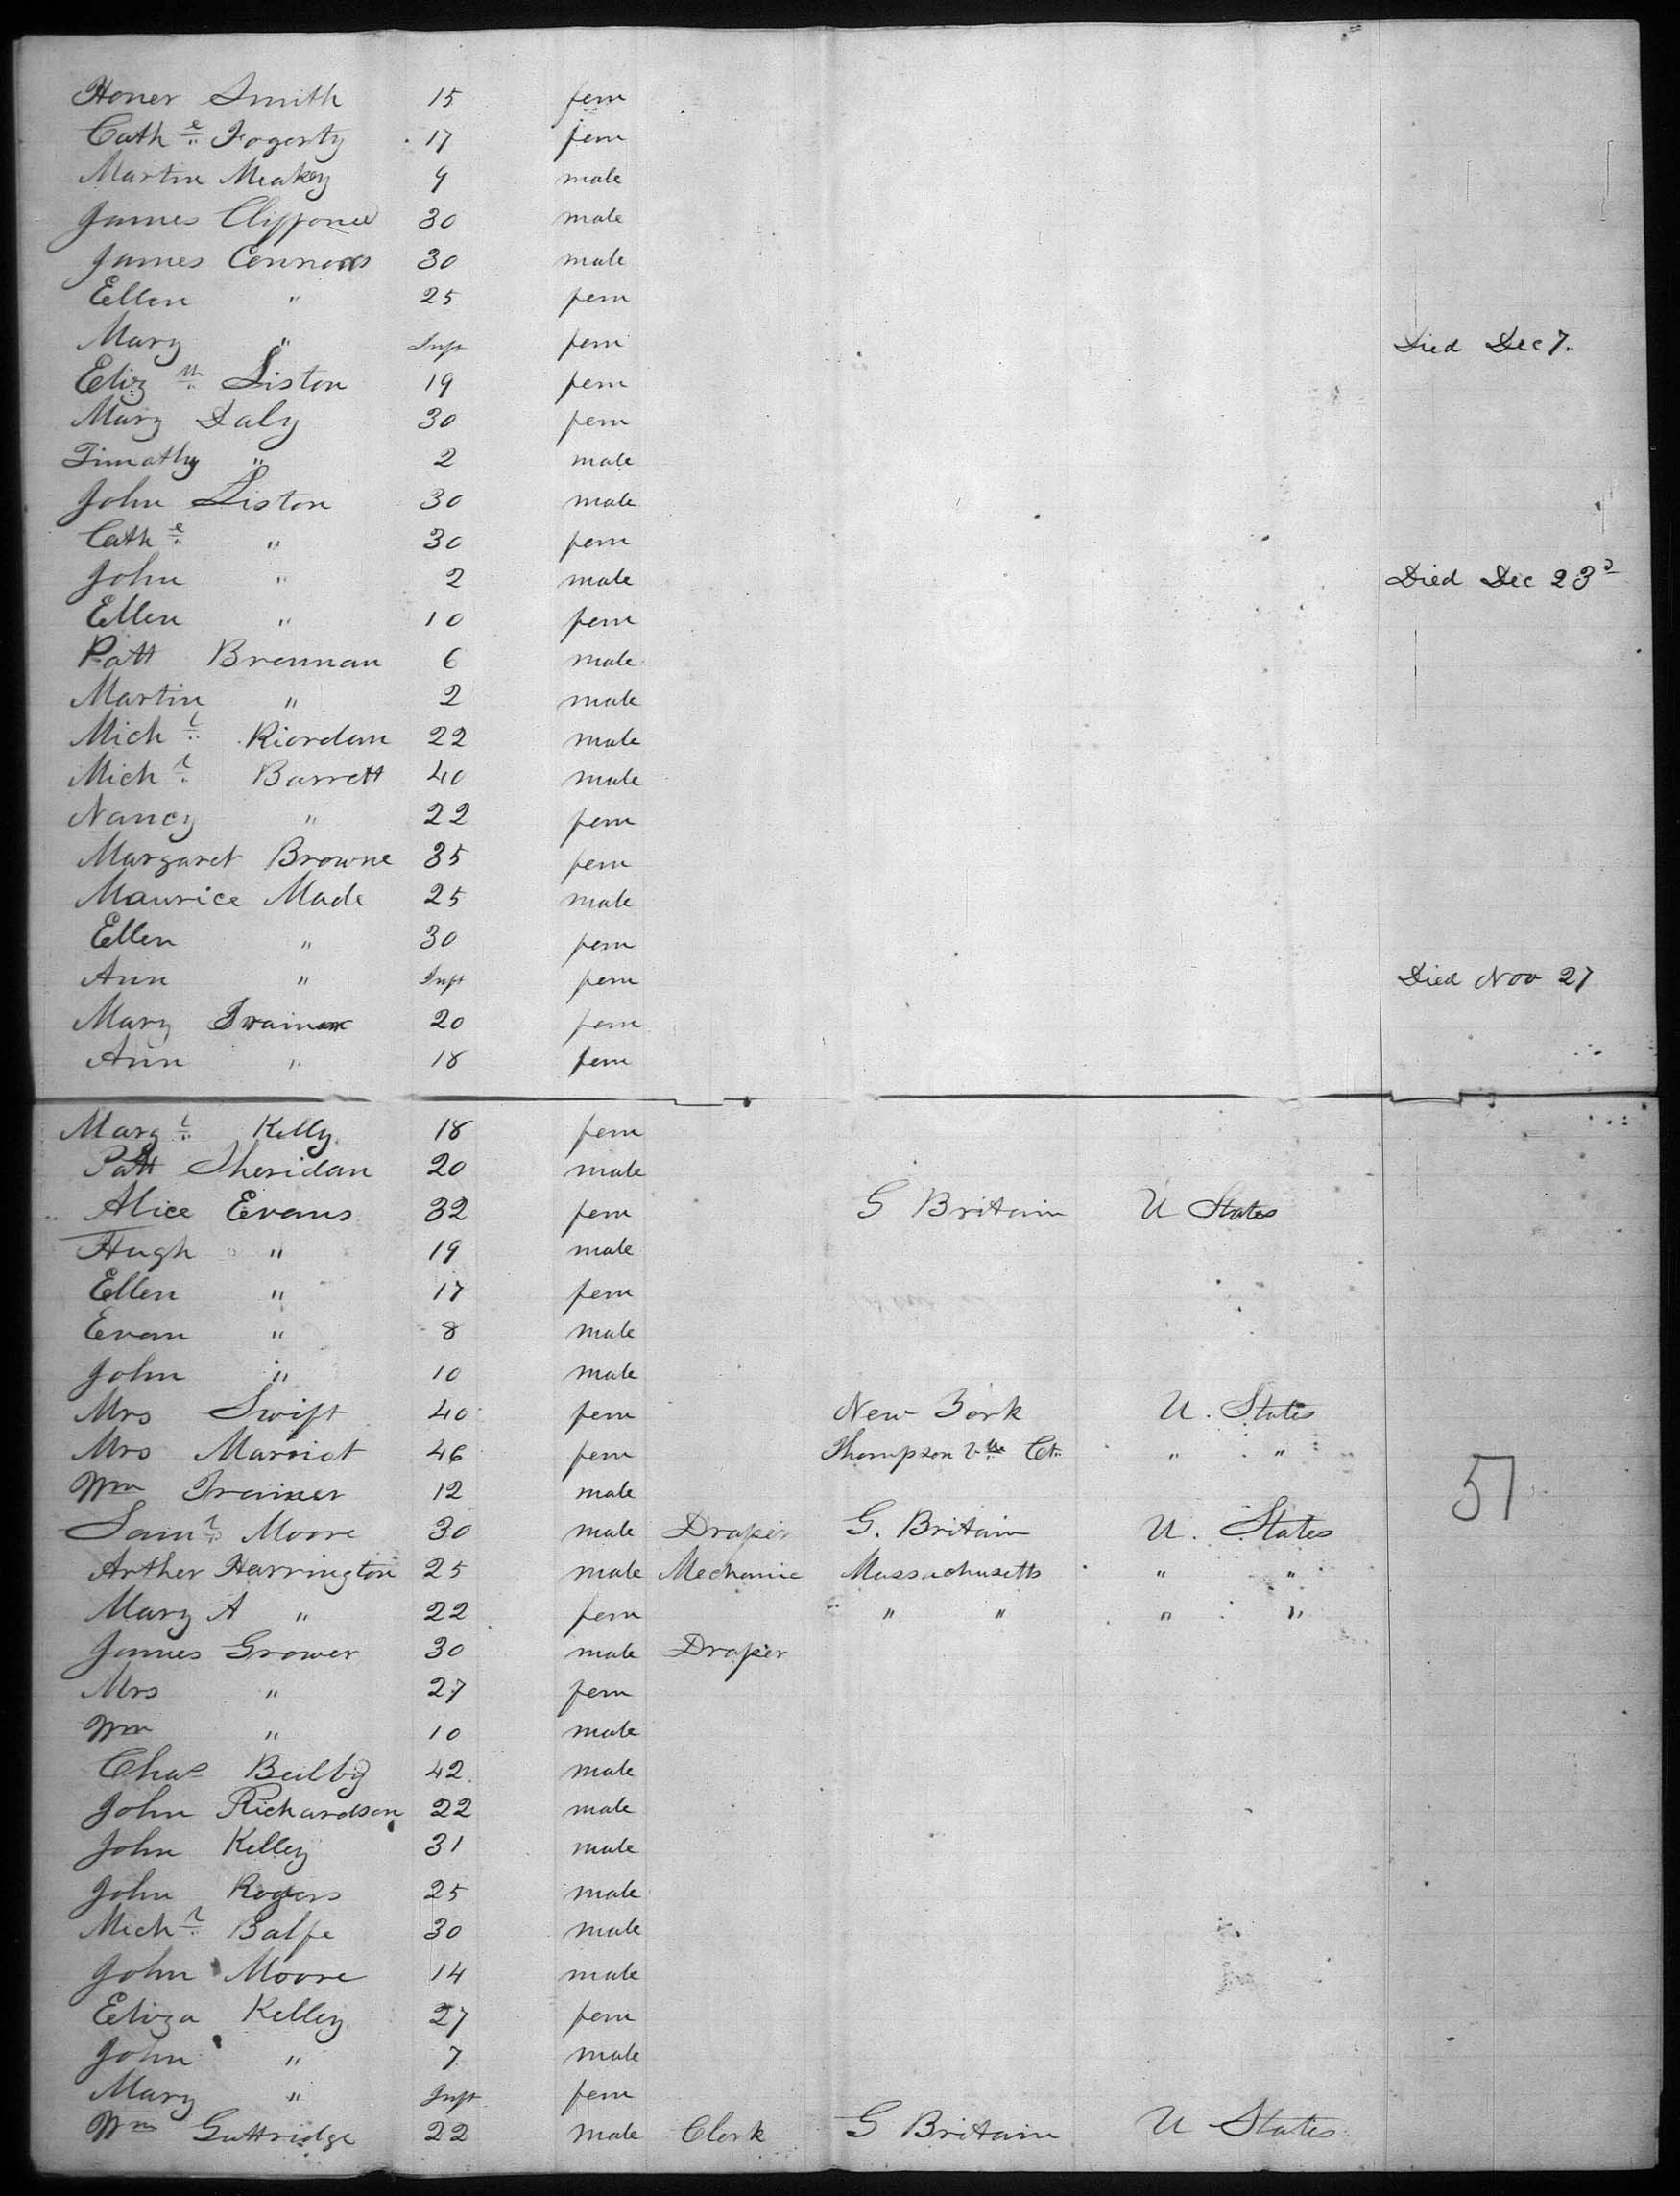 Honer Smith 15 fem
Cath e Fogerty 17 fem
Martin Meakey 9 male
James 30 male
James Connors 30 male
Ellen " 25 fem
Mary " Inft fem Died Dec 7.
Eliz th Liston 19 fem
Mary Daly 30 fem
Timothy " 2 male
John Liston 30 male
Cath e " 30 fem
John " 2 male Died Dec 23 d
Ellen " 10 fem
Patt Brennan 6 male
Martin " 2 male
Mich l Riordan 22 male
Mich l Barrett 40 male
Nancy " 22 fem
Margaret Browne 35 fem
Maurice Made 25 male
Ellen " 30 fem
Ann " Inft fem Died Nov 27
Mary 20 fem
Ann " 18 fem
Marg t Kelly 18 fem
Patt Sheridan 20 male
Alice Evans 32 fem G Britain U States
Hugh " 19 male
Ellen " 17 fem
Evan " 8 male
John " 10 male
Mrs Swift 40 fem New York U. States
Mrs Marriot 46 fem Thompson v lle Ct. " "
Wm Trainer 12 male
Sam l Moore 30 male Draper G. Britain U. States
Arther Harrington 25 male Mechanic Massachusetts " "
Mary A " 22 fem " " " "
James Grower 30 male Draper
Mrs " 27 fem
Wm " 10 male
Chas Beilby 42 male
John Richardson 22 male
John Kelley 31 male
John Rogers 25 male
Mich l Balfe 30 male
John Moore 14 male
Eliza Kelley 27 fem
John " 7 male
Mary " Inft fem
Wm Guttridge 22 male Clerk G Britain U States
51